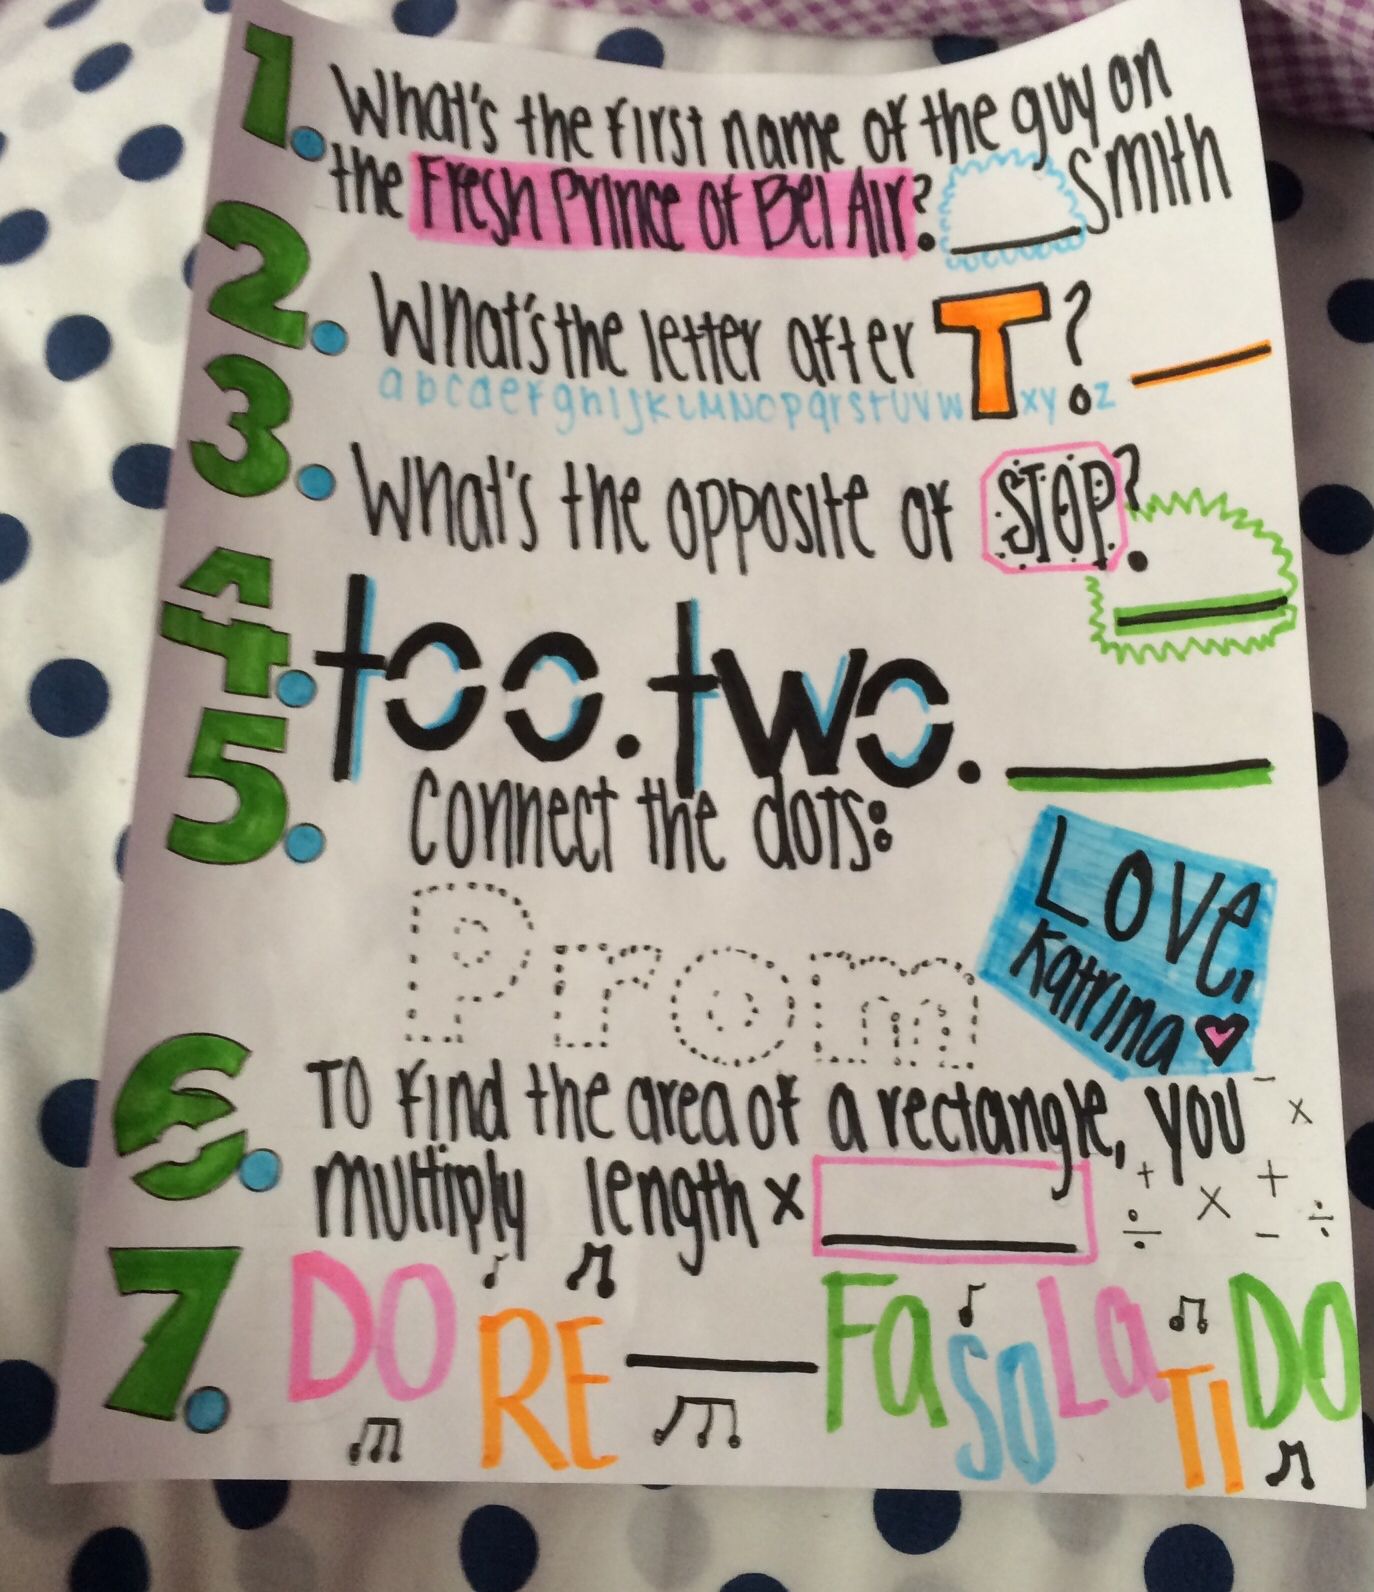 1. What's the first name of the guy on
the Fresh Prince of Bel Air? ____ Smith
2. What's the letter after T? ____
abcdefghijklmnopqrstuvwxyz
3. What's the opposite of STOP? ____
4. too. two. ____
5. connect the dots:
Prom
Love,
Katrina ♥
6. To find the area of a rectangle, you
multiply length x ____
7. DO RE ____ Fa So La Ti DO